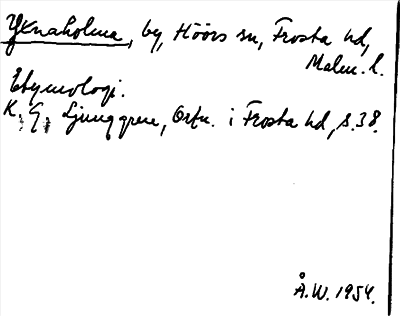 Yxnaholma, by, Höörs sn, Frosta hd,
Malm. l.
Etymologi.
K. G. Ljunggren, Ortn. i Frosta hd, s. 38.
Å.W. 1954.